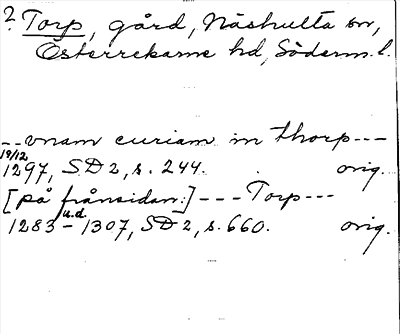 ? Torp, gård, Näshulta sn,
Österrekarne hd, Söderm. l.
-- vnam curiam in thorp ---
19/12
1297, SD 2, s. 244. orig.
[på frånsidan:] --- Torp ---
u.d.
1283 - 1307, SD 2, s. 660. orig.